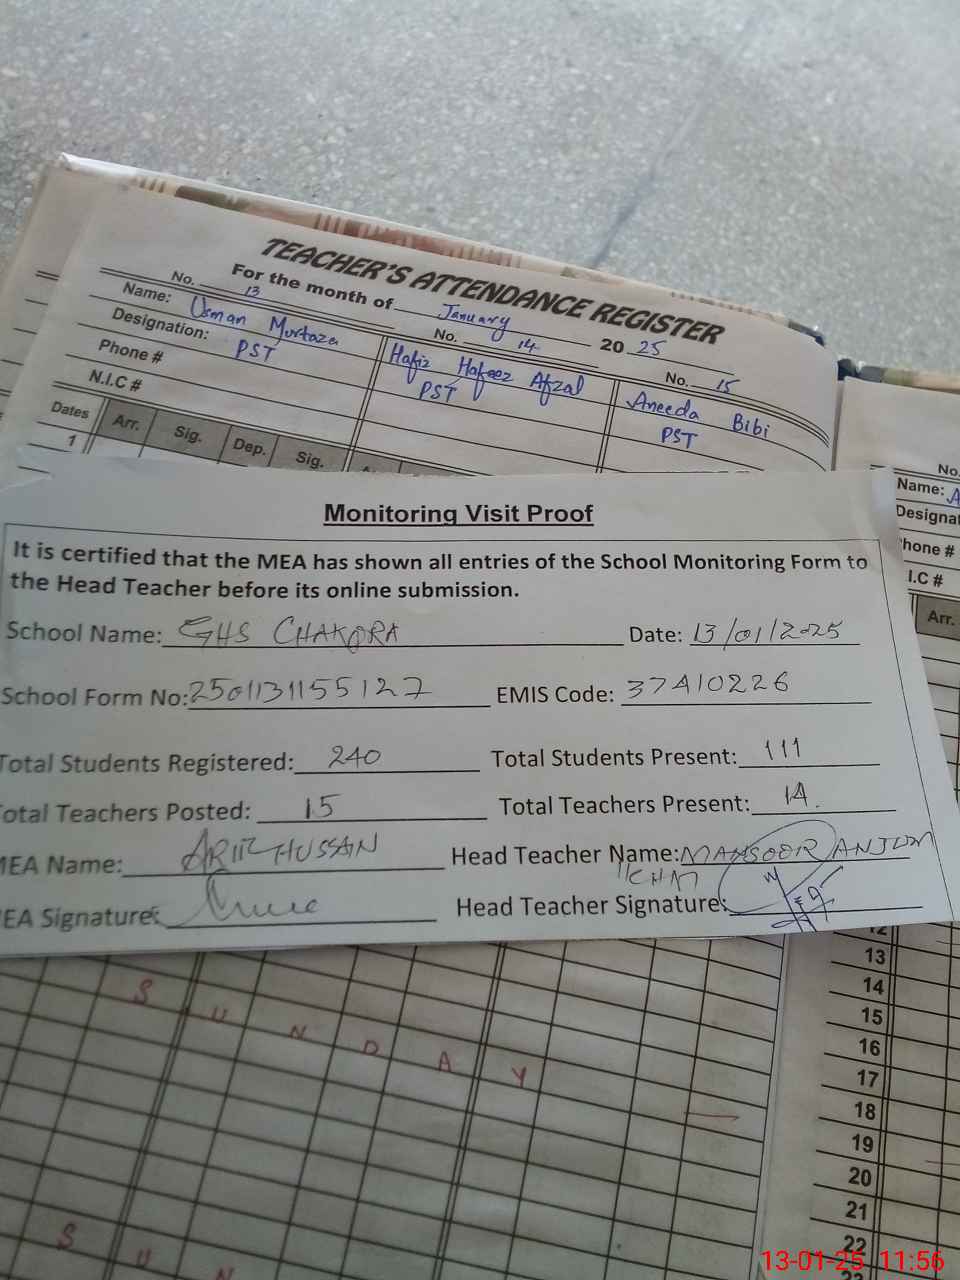 TEACHER'S ATTENDANCE REGISTER
For the month of January 2025
No. 13 No. 14 No. 15
Name: Usman Murtaza Hafiz Hafeez Afzal Aneeda Bibi
Designation: PST PST PST
Phone #
N.I.C #
Dates Arr. Sig. Dep. Sig.
1
No.
Name: A
Designa
hone #
I.C #
Arr.
Monitoring Visit Proof
It is certified that the MEA has shown all entries of the School Monitoring Form to
the Head Teacher before its online submission.
School Name: GHS CHAKORA Date: 13/01/2025
School Form No: 2501131155127 EMIS Code: 37410226
Total Students Registered: 240 Total Students Present: 111
Total Teachers Posted: 15 Total Teachers Present: 14.
MEA Name: HUSSAN Head Teacher Name: MANSOOR ANJUM
EA Signature: Head Teacher Signature:
12
13
14
15
16
17
18
19
20
21
22
23
S U N D A Y
S U N
13-01-25 11:56